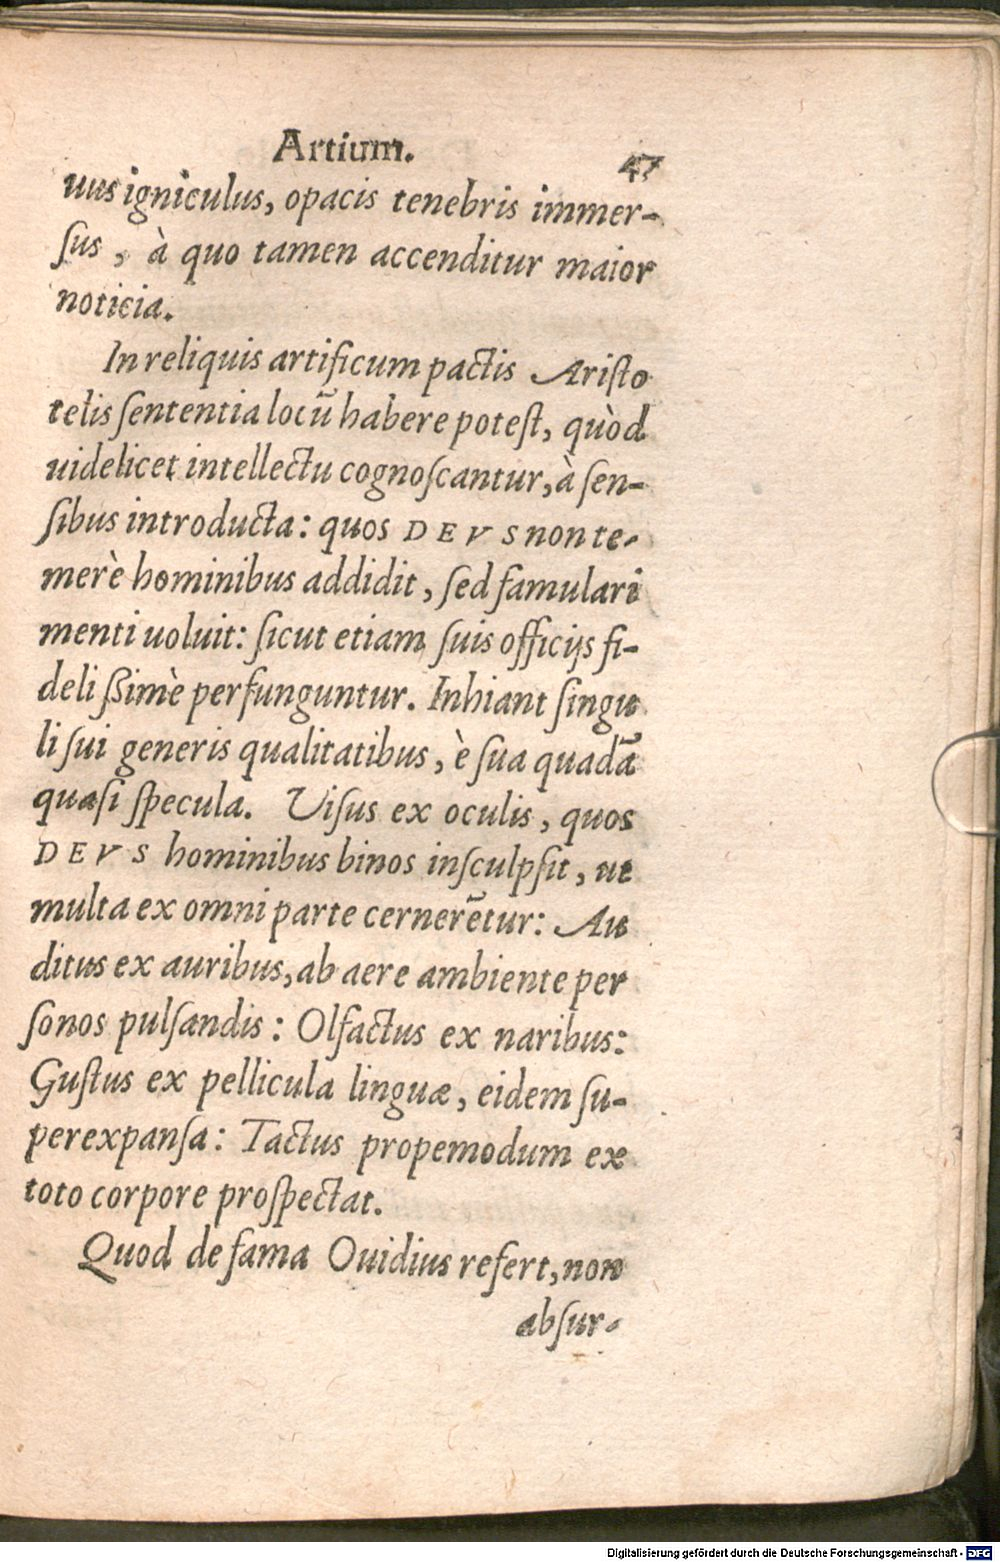 Artium.
47
uus igniculus, opacis tenebris immer-
ſus, à quo tamen accenditur maior
noticia.
In reliquis artificum pactis Ariſto
telis ſententia locũ habere poteſt, quòd
uidelicet intellectu cognoſcantur, à ſen-
ſibus introducta: quos DEVS non te-
merè hominibus addidit, ſed famulari
menti uoluit: ſicut etiam ſuis officijs fi-
deli ßimè perfunguntur. Inhiant ſingu
li ſui generis qualitatibus, è ſua quadã
quaſi ſpecula. Viſus ex oculis, quos
DEVS hominibus binos inſculpſit, ut
multa ex omni parte cernerẽtur: Au
ditus ex auribus, ab aere ambiente per
ſonos pulſandis: Olfactus ex naribus:
Guſtus ex pellicula linguæ, eidem ſu-
perexpanſa: Tactus propemodum ex
toto corpore proſpectat.
Quod de fama Ouidius refert, non
abſur-
Digitalisierung gefördert durch die Deutsche Forschungsgemeinschaft - DFG